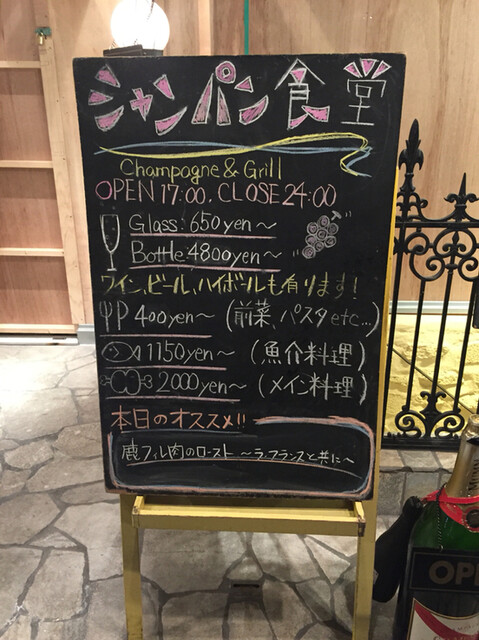 シャンパン食堂
Champagne & Grill
OPEN 17:00. CLOSE 24:00
Glass: 650yen~
Bottle: 4800yen~
ワイン、ビール、ハイボールも有ります！
400yen~ (前菜、パスタetc...)
1150yen~ (魚介料理)
2000yen~ (メイン料理)
本日のオススメ!!
鹿フィレ肉のロースト ~ラ・フランスと共に~
OPE